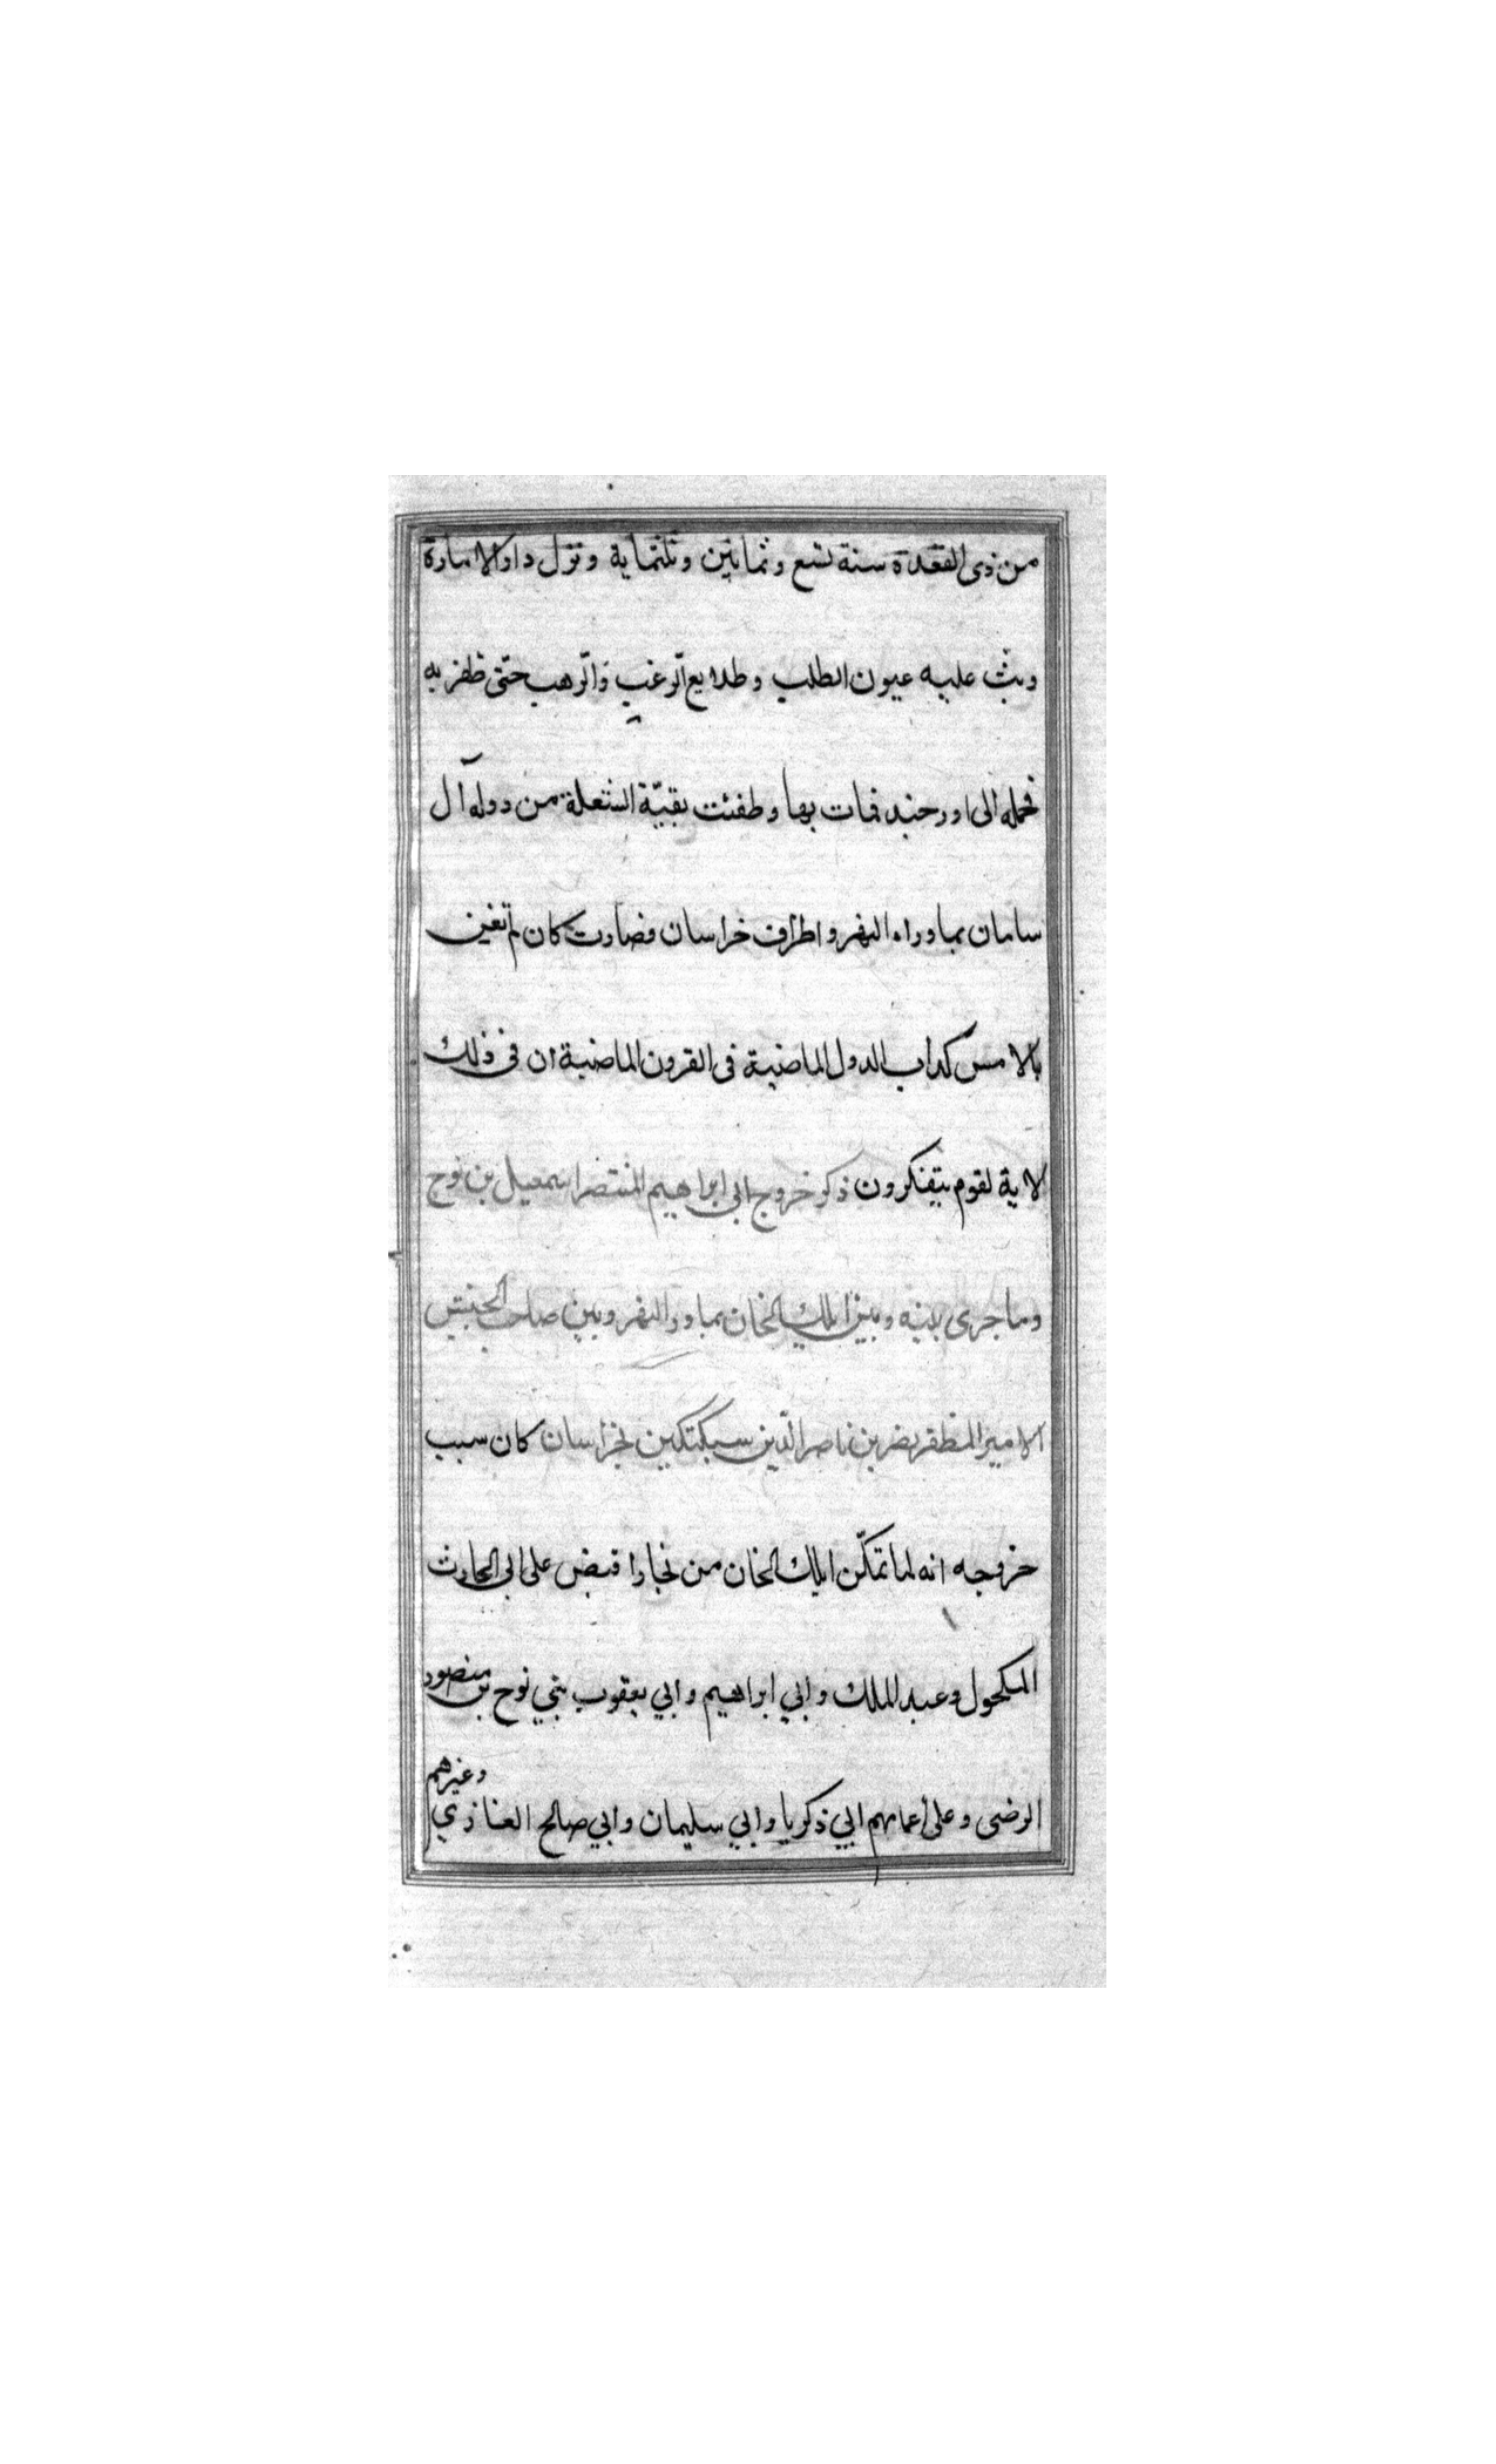 من ذى القعدة سنة تسع وثمانين وثلثماية ونزل دار الامارة
وبث عليه عيون الطلب وطلايع الرغب والرهب حتى ظفر به
فحمله الى اورجند فمات بها وطفئت بقيّة الشعلة من دولة آل
سامان بماوراء النهر واطراف خراسان فصارت كان لم تغن
بالامس كداب الدول الماضية فى القرون الماضية ان فى ذلك
لاية لقوم يتفكرون ذكر خروج ابى ابراهيم المنتصر اسمعيل بن نوح
وما جرى بينه وبين ايلك الخان بماورا النهر وبين صاحب الجيش
الامير المظفر نصر بن ناصر الدّين سبكتكين بخراسان كان سبب
خروجه انه لما تمكّن ايلك الخان من بخارا قبض على ابى الحارث
المكحول وعبد الملك وابي ابراهيم وابي يعقوب بني نوح بن منصور
الرضى وعلى أعمامهم ابي زكريا وابي سليمان وابي صالح الغازي وغيرهم